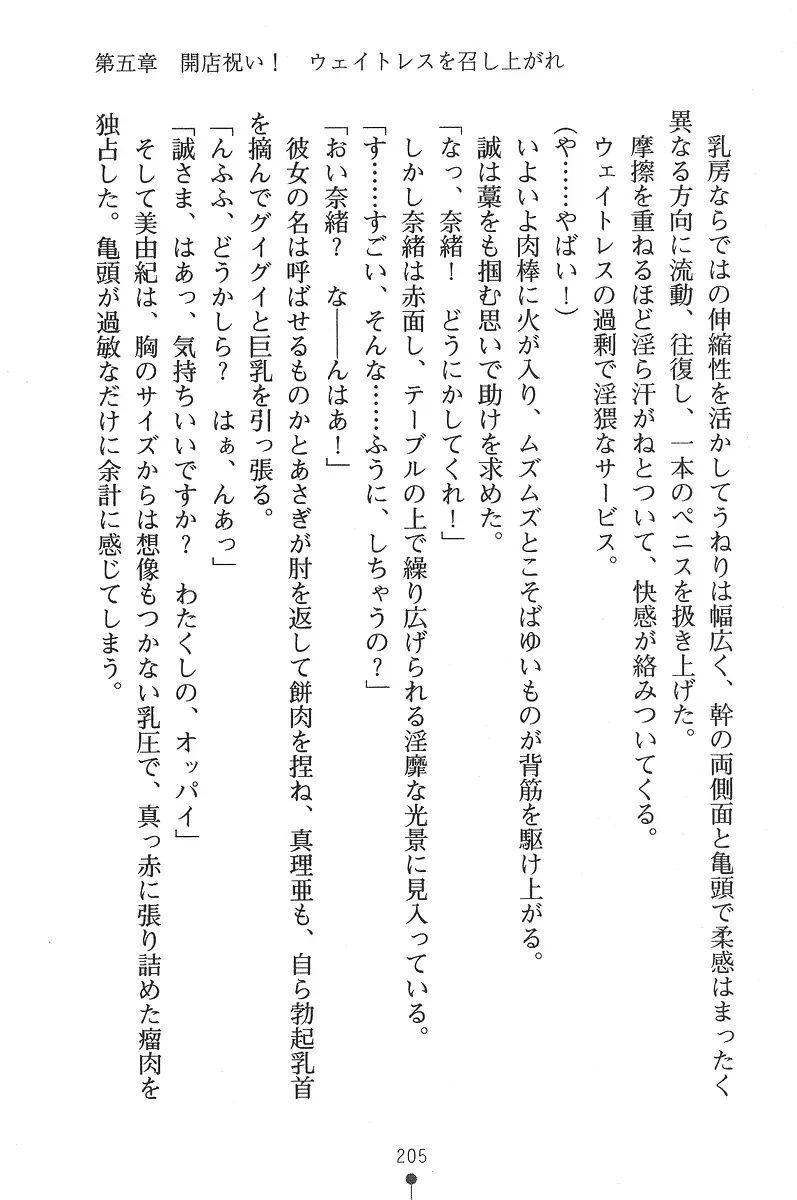 第五章　開店祝い！　ウェイトレスを召し上がれ
　乳房ならではの伸縮性を活かしてうねりは幅広く、幹の両側面と亀頭で柔感はまったく
異なる方向に流動、往復し、一本のペニスを扱き上げた。
　摩擦を重ねるほど淫ら汗がねとついて、快感が絡みついてくる。
　ウェイトレスの過剰で淫猥なサービス。
（や……やばい！）
　いよいよ肉棒に火が入り、ムズムズとこそばゆいものが背筋を駆け上がる。
　誠は藁をも掴む思いで助けを求めた。
「なっ、奈緒！　どうにかしてくれ！」
　しかし奈緒は赤面し、テーブルの上で繰り広げられる淫靡な光景に見入っている。
「す……すごい、そんな……ふうに、しちゃうの？」
「おい奈緒？　な――んはあ！」
　彼女の名は呼ばせるものかとあさぎが肘を返して餅肉を捏ね、真理亜も、自ら勃起乳首
を摘んでグイグイと巨乳を引っ張る。
「んふふ、どうかしら？　はぁ、んあっ」
「誠さま、はあっ、気持ちいいですか？　わたくしの、オッパイ」
　そして美由紀は、胸のサイズからは想像もつかない乳圧で、真っ赤に張り詰めた瘤肉を
独占した。亀頭が過敏なだけに余計に感じてしまう。
205